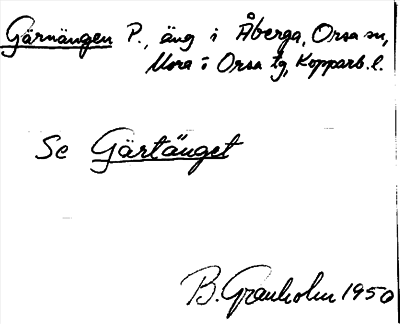 Gärnängen P., äng i Åberga, Orsa sn,
Mora o Orsa tg, Kopparb. l.
Se Gärtänget
B. Granholm 1950